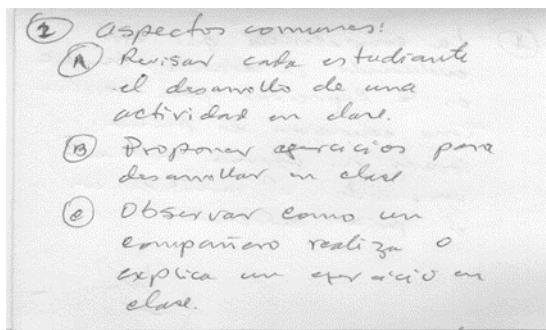 ② aspectos comunes:
Ⓐ Revisar cada estudiante
el desarrollo de una
actividad en clase.
Ⓑ Proponer ejercicios para
desarrollar en clase
ⓒ Observar como un
compañero realiza o
explica un ejercicio en
clase.